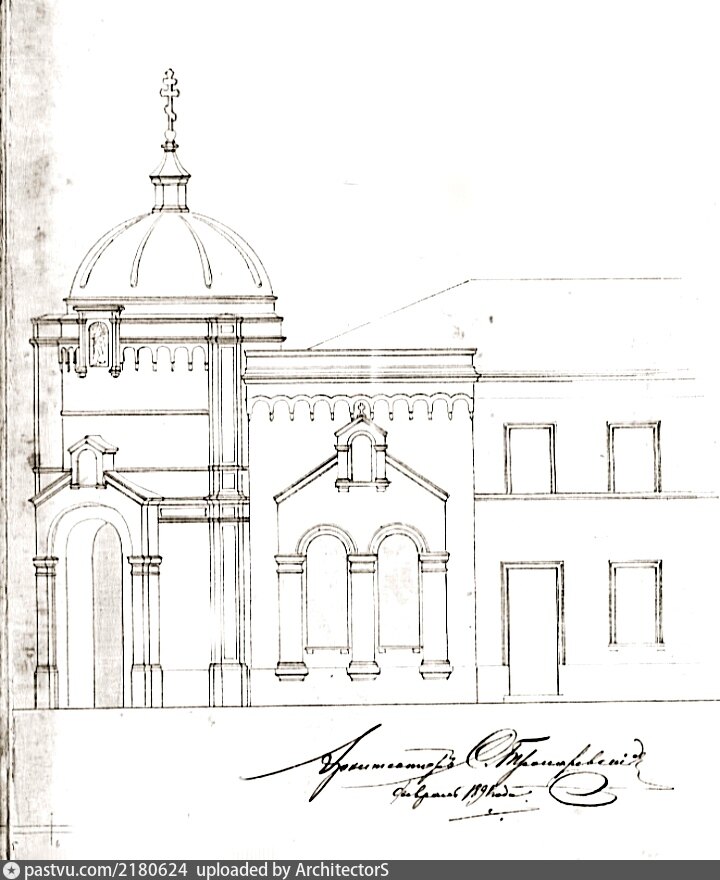 Архитекторъ
Февраль 1891 года.
pastvu.com/2180624 uploaded by ArchitectorS